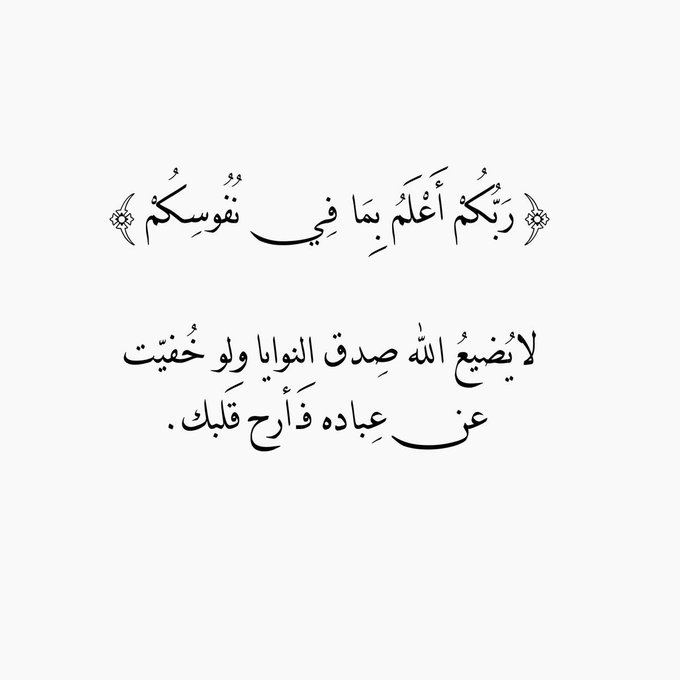 ﴿ رَبُّكُمْ أَعْلَمُ بِمَا فِي نُفُوسِكُمْ ﴾
لا يُضيعُ الله صِدق النوايا ولو خُفيّت
عن عِباده فَأرح قَلبك.